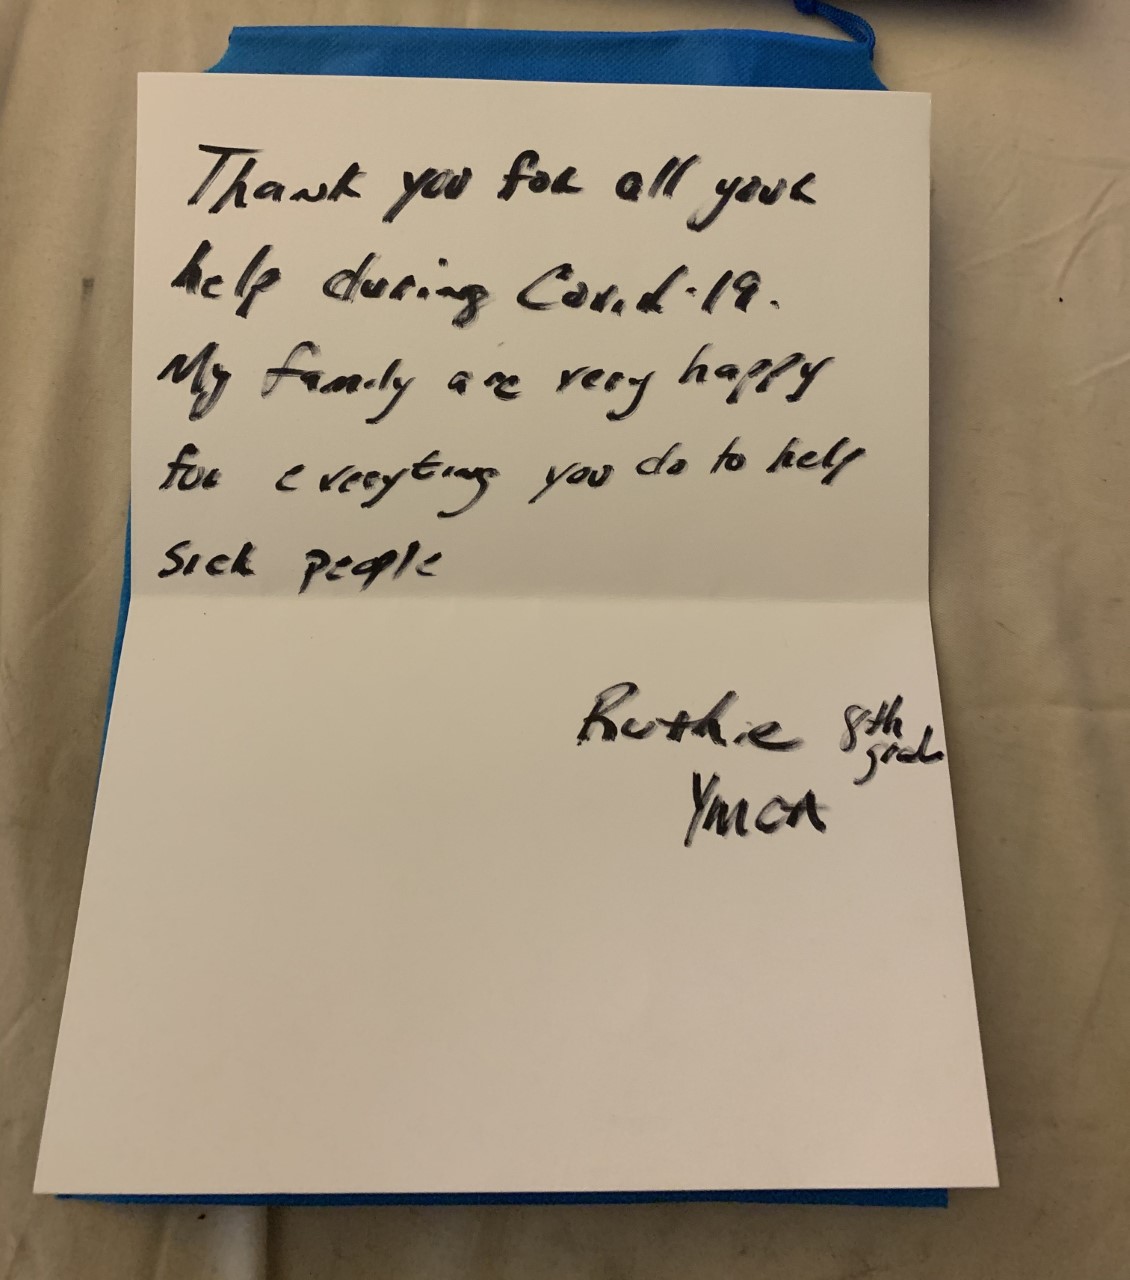 Thank you for all your
help during Covid-19.
My family are very happy
for everything you do to help
sick people
Ruthie 8th
grade
YMCA